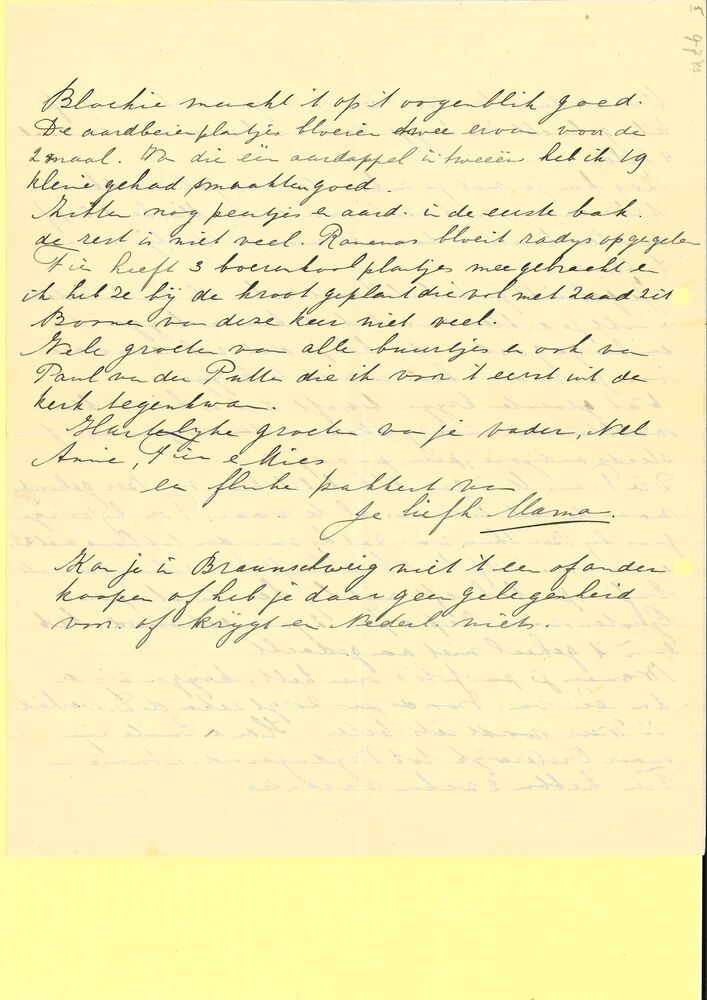 5
9-7 '43
Blackie maakt 't op 't oogenblik goed.
De aardbeienplantjes bloeien twee ervan voor de
2 maal. Van die één aardappel in tweeën heb ik 19
kleine gehad smaakten goed.
Zitten nog peentjes en aard. in de eerste bak.
de rest is niet veel. Ramenas bloeit radys opgegeten
Fien heeft 3 boerenkoolplantjes meegebracht en
ik heb ze bij de kroot geplant die vol met zaad zit
Boonen van deze keer niet veel.
Vele groeten van alle buurtjes en ook van
Paul van der Putten die ik voor 't eerst uit de
kerk tegenkwam.
Hartelyke groeten van je vader, Nel
Annie, Fien en Mies
en flinke pakkert van
Je liefh Mama.
Kan je in Braunschweig niet 't een of ander
koopen of heb je daar geen gelegenheid
voor. of krijgt een Nederl. niets.